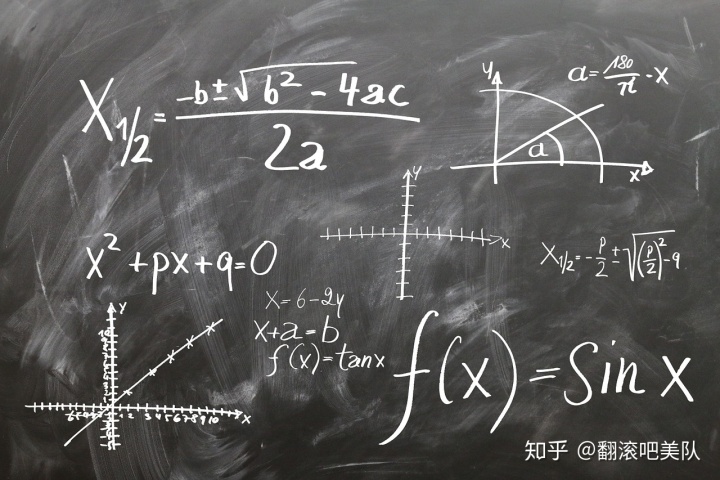 X₁/₂ = (-b±√(b² - 4ac))/(2a)
y
a = 180/π · x
a
x
y
x
x² + px + q = 0
X₁/₂ = -p/2 ± √((p/2)² - q)
x = 6 - 2y
x + a = b
f(x) = tan x
f(x) = Sin x
y
x
知乎 @翻滚吧美队